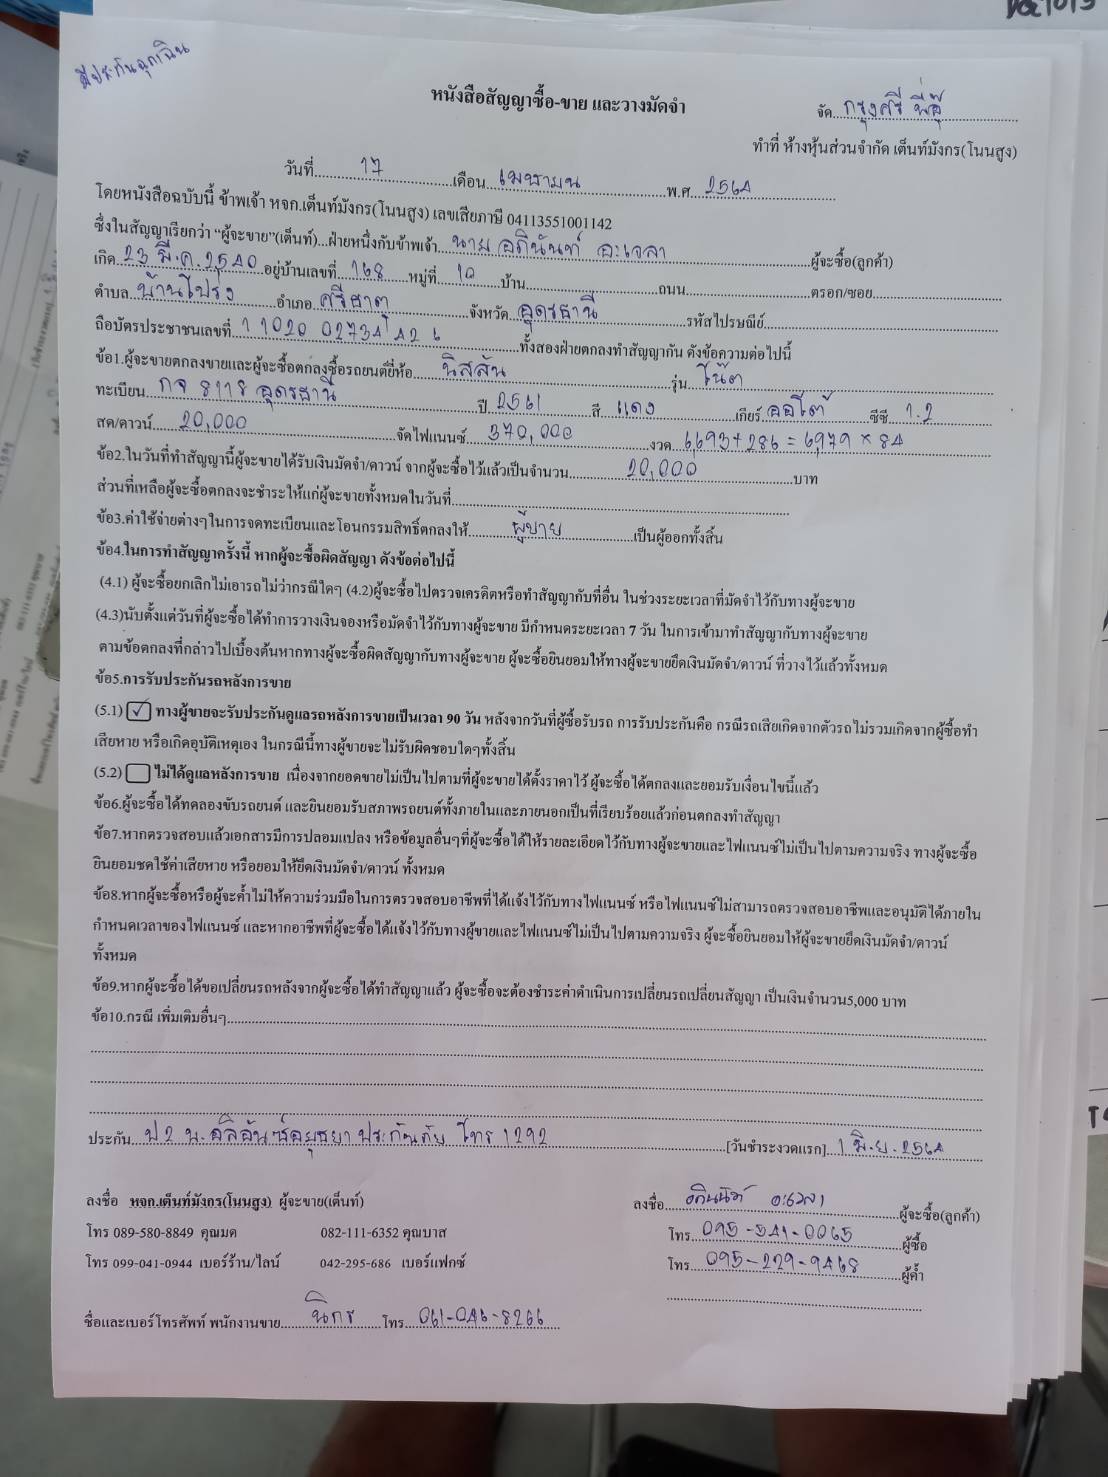 มีประกันฉุกเฉิน
หนังสือสัญญาซื้อ-ขาย และวางมัดจำ
จัด กรุงศรี พี่อุ๊
ทำที่ ห้างหุ้นส่วนจำกัด เต็นท์มังกร(โนนสูง)
วันที่ 17 เดือน เมษายน พ.ศ. 2564
โดยหนังสือฉบับนี้ ข้าพเจ้า หจก.เต็นท์มังกร(โนนสูง) เลขเสียภาษี 04113551001142
ซึ่งในสัญญาเรียกว่า “ผู้จะขาย”(เต็นท์)...ฝ่ายหนึ่งกับข้าพเจ้า นาย อภินันท์ อะเวลา ผู้จะซื้อ(ลูกค้า)
เกิด 23 มี.ค. 2540 อยู่บ้านเลขที่ 168 หมู่ที่ 10 บ้าน ถนน ตรอก/ซอย
ตำบล บ้านโปร่ง อำเภอ ศรีธาตุ จังหวัด อุดรธานี รหัสไปรษณีย์
ถือบัตรประชาชนเลขที่ 1 1020 02734 42 6 ทั้งสองฝ่ายตกลงทำสัญญากัน ดังข้อความต่อไปนี้
ข้อ1.ผู้จะขายตกลงขายและผู้จะซื้อตกลงซื้อรถยนต์ยี่ห้อ นิสสัน รุ่น โน๊ต
ทะเบียน กจ 8118 อุดรธานี ปี 2561 สี แดง เกียร์ ออโต้ ซีซี 1.2
สด/ดาวน์ 20,000 จัดไฟแนนซ์ 370,000 งวด 6693+286 = 6979 × 84
ข้อ2.ในวันที่ทำสัญญานี้ผู้จะขายได้รับเงินมัดจำ/ดาวน์ จากผู้จะซื้อไว้แล้วเป็นจำนวน 20,000 บาท
ส่วนที่เหลือผู้จะซื้อตกลงจะชำระให้แก่ผู้จะขายทั้งหมดในวันที่
ข้อ3.ค่าใช้จ่ายต่างๆในการจดทะเบียนและโอนกรรมสิทธิ์ตกลงให้ ผู้ขาย เป็นผู้ออกทั้งสิ้น
ข้อ4.ในการทำสัญญาครั้งนี้ หากผู้จะซื้อผิดสัญญา ดังข้อต่อไปนี้
(4.1) ผู้จะซื้อยกเลิกไม่เอารถไม่ว่ากรณีใดๆ (4.2)ผู้จะซื้อไปตรวจเครดิตหรือทำสัญญากับที่อื่น ในช่วงระยะเวลาที่มัดจำไว้กับทางผู้จะขาย
(4.3)นับตั้งแต่วันที่ผู้จะซื้อได้ทำการวางเงินจองหรือมัดจำไว้กับทางผู้จะขาย มีกำหนดระยะเวลา 7 วัน ในการเข้ามาทำสัญญากับทางผู้จะขาย
ตามข้อตกลงที่กล่าวไปเบื้องต้นหากทางผู้จะซื้อผิดสัญญากับทางผู้จะขาย ผู้จะซื้อยินยอมให้ทางผู้จะขายยึดเงินมัดจำ/ดาวน์ ที่วางไว้แล้วทั้งหมด
ข้อ5.การรับประกันรถหลังการขาย
(5.1) ✓ ทางผู้ขายจะรับประกันดูแลรถหลังการขายเป็นเวลา 90 วัน หลังจากวันที่ผู้ซื้อรับรถ การรับประกันคือ กรณีรถเสียเกิดจากตัวรถไม่รวมเกิดจากผู้ซื้อทำ
เสียหาย หรือเกิดอุบัติเหตุเอง ในกรณีนี้ทางผู้ขายจะไม่รับผิดชอบใดๆทั้งสิ้น
(5.2) ไม่ได้ดูแลหลังการขาย เนื่องจากยอดขายไม่เป็นไปตามที่ผู้จะขายได้ตั้งราคาไว้ ผู้จะซื้อได้ตกลงและยอมรับเงื่อนไขนี้แล้ว
ข้อ6.ผู้จะซื้อได้ทดลองขับรถยนต์ และยินยอมรับสภาพรถยนต์ทั้งภายในและภายนอกเป็นที่เรียบร้อยแล้วก่อนตกลงทำสัญญา
ข้อ7.หากตรวจสอบแล้วเอกสารมีการปลอมแปลง หรือข้อมูลอื่นๆที่ผู้จะซื้อได้ให้รายละเอียดไว้กับทางผู้จะขายและไฟแนนซ์ไม่เป็นไปตามความจริง ทางผู้จะซื้อ
ยินยอมชดใช้ค่าเสียหาย หรือยอมให้ยึดเงินมัดจำ/ดาวน์ ทั้งหมด
ข้อ8.หากผู้จะซื้อหรือผู้จะค้ำไม่ให้ความร่วมมือในการตรวจสอบอาชีพที่ได้แจ้งไว้กับทางไฟแนนซ์ หรือไฟแนนซ์ไม่สามารถตรวจสอบอาชีพและอนุมัติได้ภายใน
กำหนดเวลาของไฟแนนซ์ และหากอาชีพที่ผู้จะซื้อได้แจ้งไว้กับทางผู้ขายและไฟแนนซ์ไม่เป็นไปตามความจริง ผู้จะซื้อยินยอมให้ผู้จะขายยึดเงินมัดจำ/ดาวน์
ทั้งหมด
ข้อ9.หากผู้จะซื้อได้ขอเปลี่ยนรถหลังจากผู้จะซื้อได้ทำสัญญาแล้ว ผู้จะซื้อจะต้องชำระค่าดำเนินการเปลี่ยนรถเปลี่ยนสัญญา เป็นเงินจำนวน5,000 บาท
ข้อ10.กรณี เพิ่มเติมอื่นๆ
ประกัน ป2 บ. อลิอันซ์อยุธยา ประกันภัย โทร 1292 [วันชำระงวดแรก] 1 มิ.ย. 2564
ลงชื่อ หจก.เต็นท์มังกร(โนนสูง) ผู้จะขาย(เต็นท์) ลงชื่อ อภินันท์ อะเวลา ผู้จะซื้อ(ลูกค้า)
โทร 089-580-8849 คุณมด 082-111-6352 คุณบาส โทร 095-541-0065 ผู้ซื้อ
โทร 099-041-0944 เบอร์ร้าน/ไลน์ 042-295-686 เบอร์แฟกซ์ โทร 095-229-9468 ผู้ค้ำ
ชื่อและเบอร์โทรศัพท์ พนักงานขาย นิกร โทร 061-046-8266